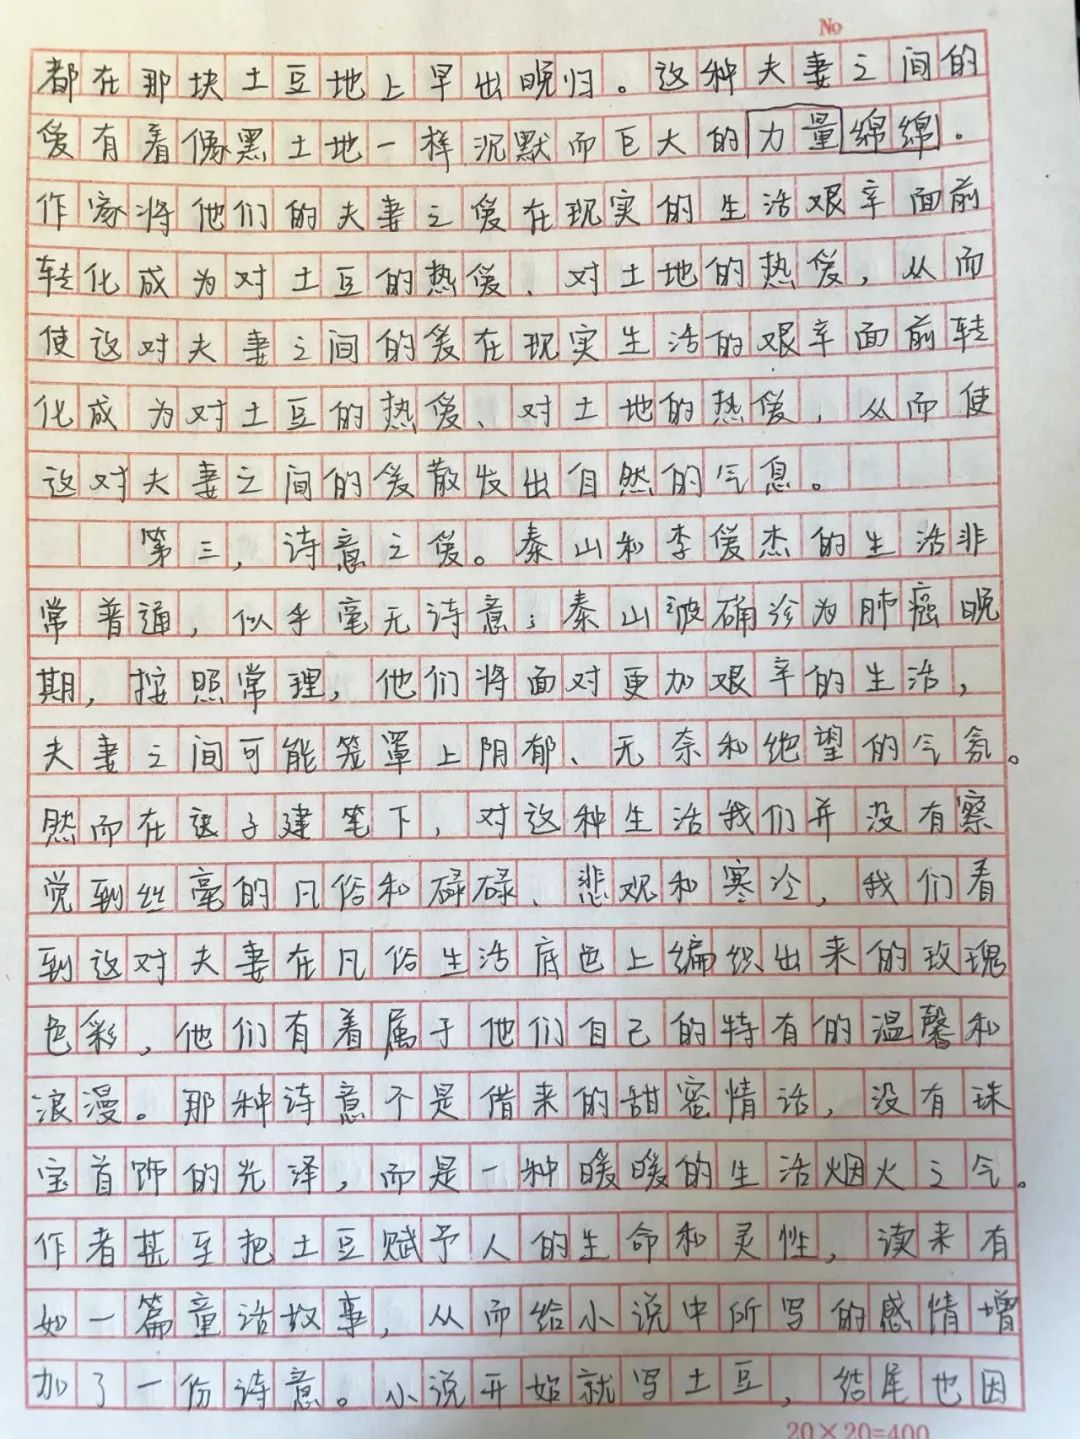 No
都在那块土豆地上早出晚归。这种夫妻之间的
爱有着像黑土地一样沉默而巨大的力量绵绵。
作家将他们的夫妻之爱在现实的生活艰辛面前
转化成为对土豆的热爱、对土地的热爱，从而
使这对夫妻之间的爱在现实生活的艰辛面前转
化成为对土豆的热爱、对土地的热爱，从而使
这对夫妻之间的爱散发出自然的气息。
第三，诗意之爱。秦山和李爱杰的生活非
常普通，似乎毫无诗意；秦山被确诊为肺癌晚
期，按照常理，他们将面对更加艰辛的生活，
夫妻之间可能笼罩上阴郁、无奈和绝望的气氛。
然而在迟子建笔下，对这种生活我们并没有察
觉到丝毫的凡俗和碌碌、悲观和寒冷，我们看
到这对夫妻在凡俗生活底色上编织出来的玫瑰
色彩，他们有着属于他们自己的特有的温馨和
浪漫。那种诗意不是借来的甜密情话，没有珠
宝首饰的光泽，而是一种暖暖的生活烟火之气。
作者甚至把土豆赋予人的生命和灵性，读来有
如一篇童话故事，从而给小说中所写的感情增
加了一份诗意。小说开始就写土豆，结尾也因
20×20=400